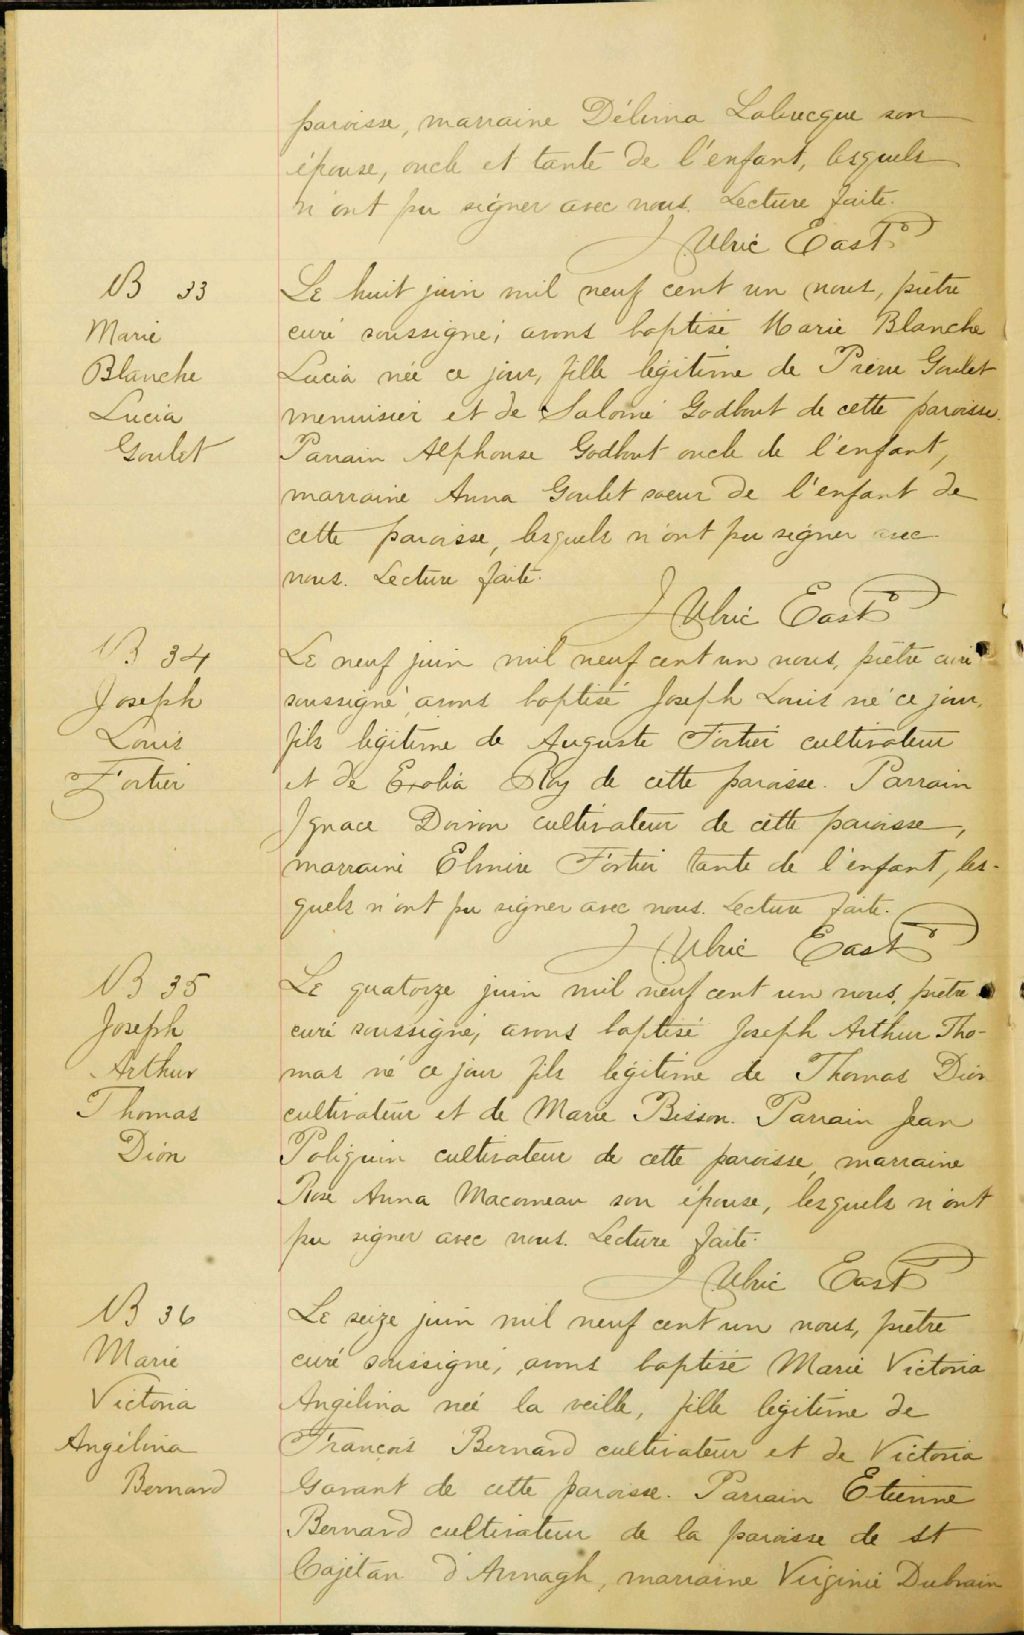 paroisse, marraine Délima Labrecque son
épouse, oncle et tante de l'enfant, lesquels
n'ont pu signer avec nous. Lecture faite.
J Ulric East
B 33
Marie
Blanche
Lucia
Goulet
Le huit juin mil neuf cent un nous, prêtre
curé soussigné, avons baptisé Marie Blanche
Lucia née ce jour, fille légitime de Pierre Goulet
menuisier et de Salomé Godbout de cette paroisse.
Parrain Alphonse Godbout oncle de l'enfant,
marraine Anna Goulet soeur de l'enfant de
cette paroisse, lesquels n'ont pu signer avec
nous. Lecture faite.
J Ulric East
B 34
Joseph
Louis
Fortier
Le neuf juin mil neuf cent un nous, prêtre curé
soussigné, avons baptisé Joseph Louis né ce jour,
fils légitime de Auguste Fortier cultivateur
et de Roy de cette paroisse. Parrain
Ignace Doiron cultivateur de cette paroisse,
marraine Elmire Fortier tante de l'enfant, les-
quels n'ont pu signer avec nous. Lecture faite.
J Ulric East
B 35
Joseph
Arthur
Thomas
Dion
Le quatorze juin mil neuf cent un nous, prêtre
curé soussigné, avons baptisé Joseph Arthur Tho-
mas né ce jour fils légitime de Thomas Dion
cultivateur et de Marie Bisson. Parrain Jean
Poliquin cultivateur de cette paroisse, marraine
Rose Anna Macomeau son épouse, lesquels n'ont
pu signer avec nous. Lecture faite.
J Ulric East
B 36
Marie
Victoria
Angélina
Bernard
Le seize juin mil neuf cent un nous, prêtre
curé soussigné, avons baptisé Marie Victoria
Angélina née la veille, fille légitime de
François Bernard cultivateur et de Victoria
Gavant de cette paroisse. Parrain Etienne
Bernard cultivateur de la paroisse de St
Cajétan d'Armagh, marraine Virginie